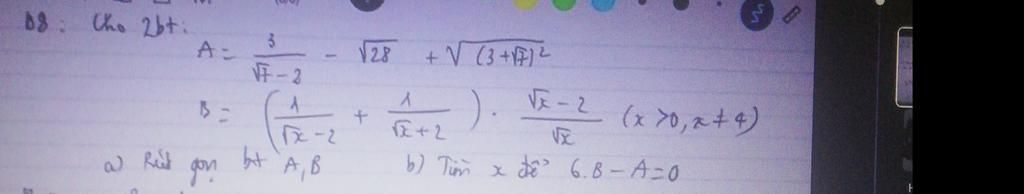 D8: Cho 2bt:
A = 3/(√7 - 2) - √28 + √((3+√7)²)
B = (1/(√x - 2) + 1/(√x + 2)) . (√x - 2)/√x (x > 0, x ≠ 4)
a) Rút gọn bt A, B b) Tìm x để 6.B - A = 0